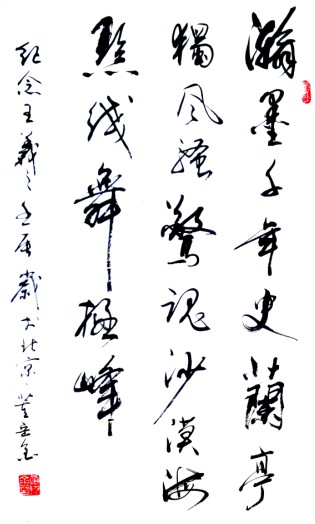 瀚墨千年史蘭亭
獨風騷驚魂沙漠海
點綫舞極峰
紀念王羲之壬辰歲北京董